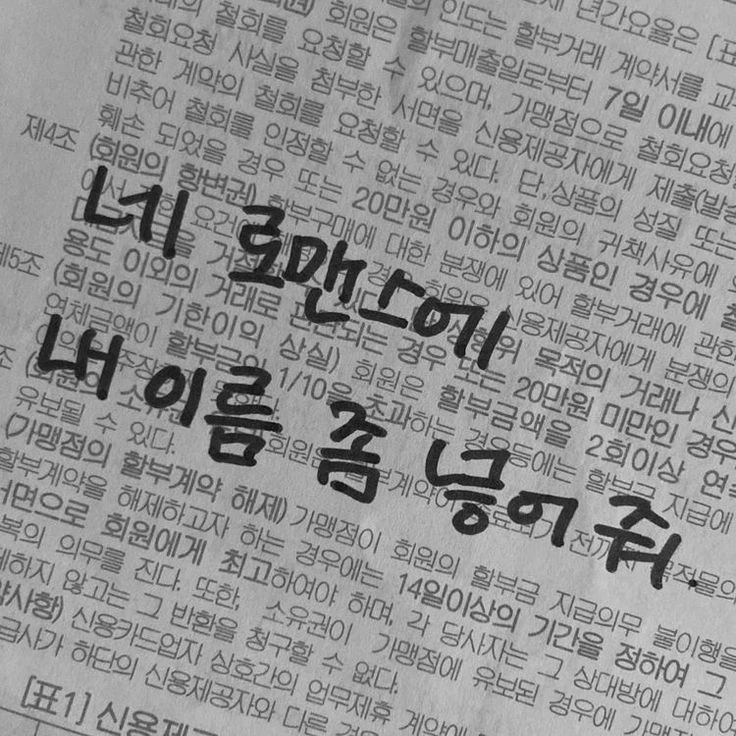 년간요율은 [표
인도는 할부거래 계약서를 교
회원은 할부매출일로부터 7일 이내에
철회를 요청할 수 있으며, 가맹점으로 철회요청
철회요청 사실을 첨부한 서면을 신용제공자에게 제출(발
관한 계약의 철회를 요청할 수 있다. 단,상품의 성질 또는
비추어 철회를 인정할 수 없는 경우와 회원의 귀책사유에
훼손 되었을 경우 또는 20만원 이하의 상품인 경우에 철
제4조 (회원의 항변권) 할부구매에 대한 분쟁에 있어 할부거래에 관한
신용제공자에게 분쟁의
네 로맨스에
용도 이외의 거래로 목적의 거래나 신
경우 또는 20만원 미만인 경우
제5조 (회원의 기한이의 상실) 회원은 할부금액을 2회이상 연속
연체금액이 할부금의 1/10을 초과하는 경우 등에는 할부금 지급에
내 이름 좀 넣어 줘.
유보될 수 있다.
(가맹점의 할부계약 해제) 가맹점이 회원의 할부금 지급의무 불이행을
할부계약을 해제하고자 하는 경우에는 14일이상의 기간을 정하여 그
서면으로 회원에게 최고하여야 하며, 각 당사자는 그 상대방에 대하여
복의 의무를 진다. 또한, 소유권이 가맹점에 유보된 경우에 가맹
하지 않고는 그 반환을 청구할 수 없다.
사항) 신용카드업자 상호간의 업무제휴 계약에
급사가 하단의 신용제공자와 다른
[표1] 신용제공